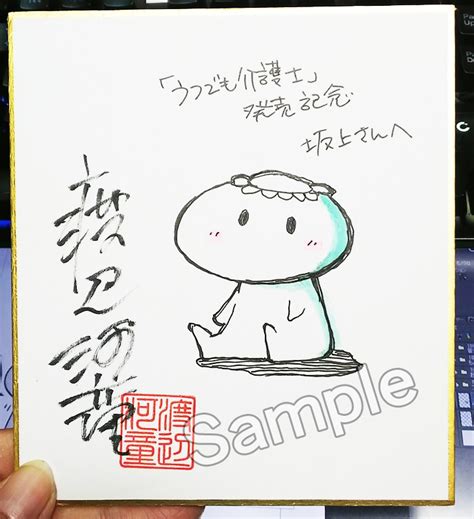 「うつでも介護士」
発売記念
坂上さんへ
渡辺河童
渡辺
河童
Sample